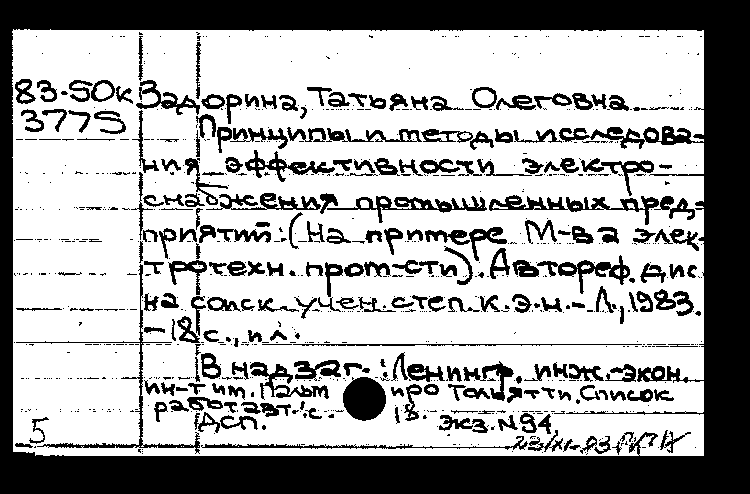 83-5Ок Задорина, Татьяна Олеговна.
3775 Принципы и методы исследова-
ния эффективности электро-
снабжения промышленных пред-
приятий: (На примере М-ва элек-
тротехн. пром-сти). Автореф. дис.
на соиск. учен. степ. к.э.н. - Л., 1983.
- 18 с., ил.
В надзаг.: Ленингр. инж.-экон.
ин-т им. Пальмиро Тольятти. Список
работ авт.: с. 18.
ДСП. экз. N 94.
5